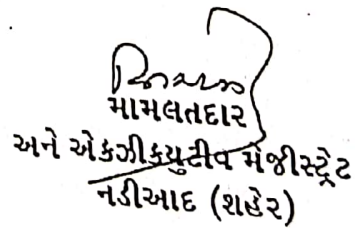 મામલતદાર
અને એકઝીકયુટીવ મેજીસ્ટ્રેટ
નડીઆદ (શહેર)